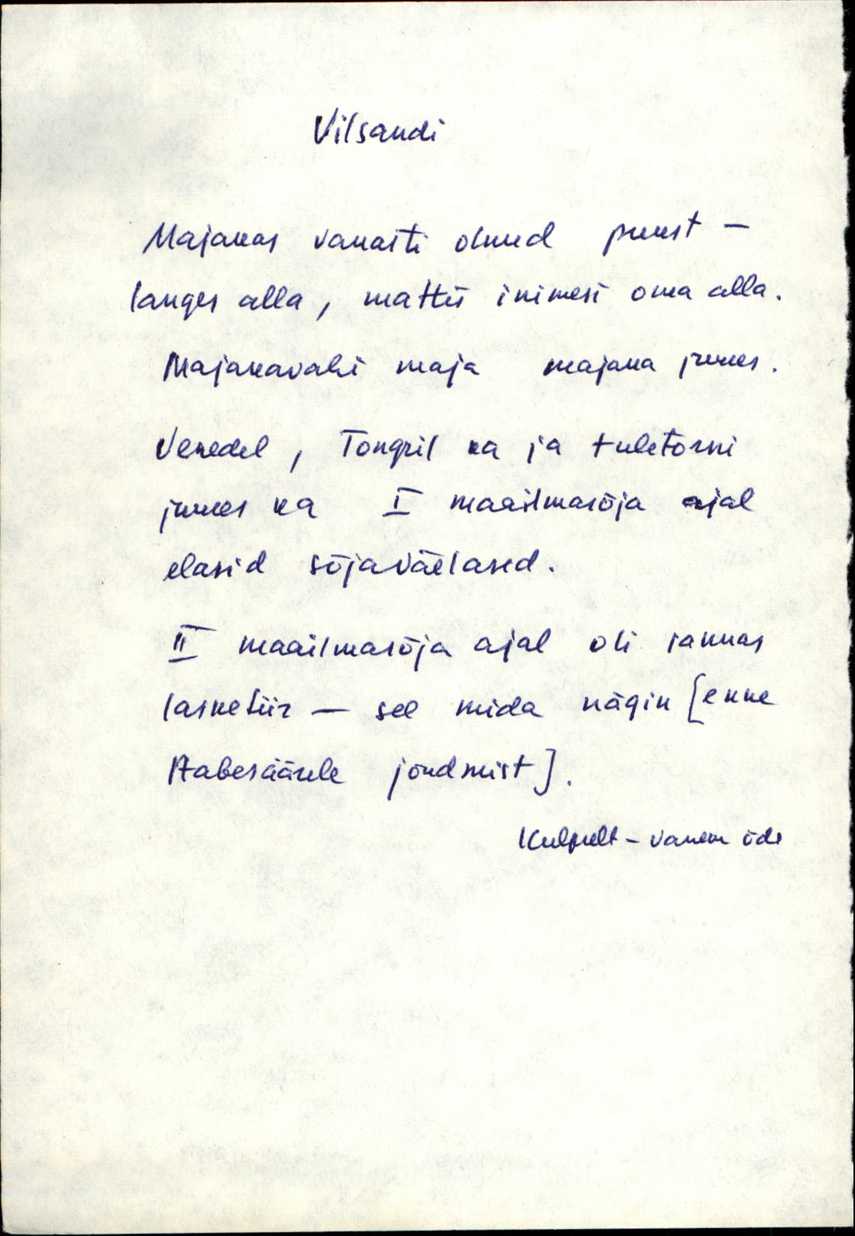 Vilsandi
Majakas vanasti olnud puust –
langes alla, mattis inimesi oma alla.
Majakavahi maja majaka juures.
Veredel, Tongril ka ja tuletorni
juures ka I maailmasõja ajal
elasid sõjaväelased.
II maailmasõja ajal oli rannas
lasketiir – see mida nägin [enne
saabesäärele jõudmist].
vanem õde